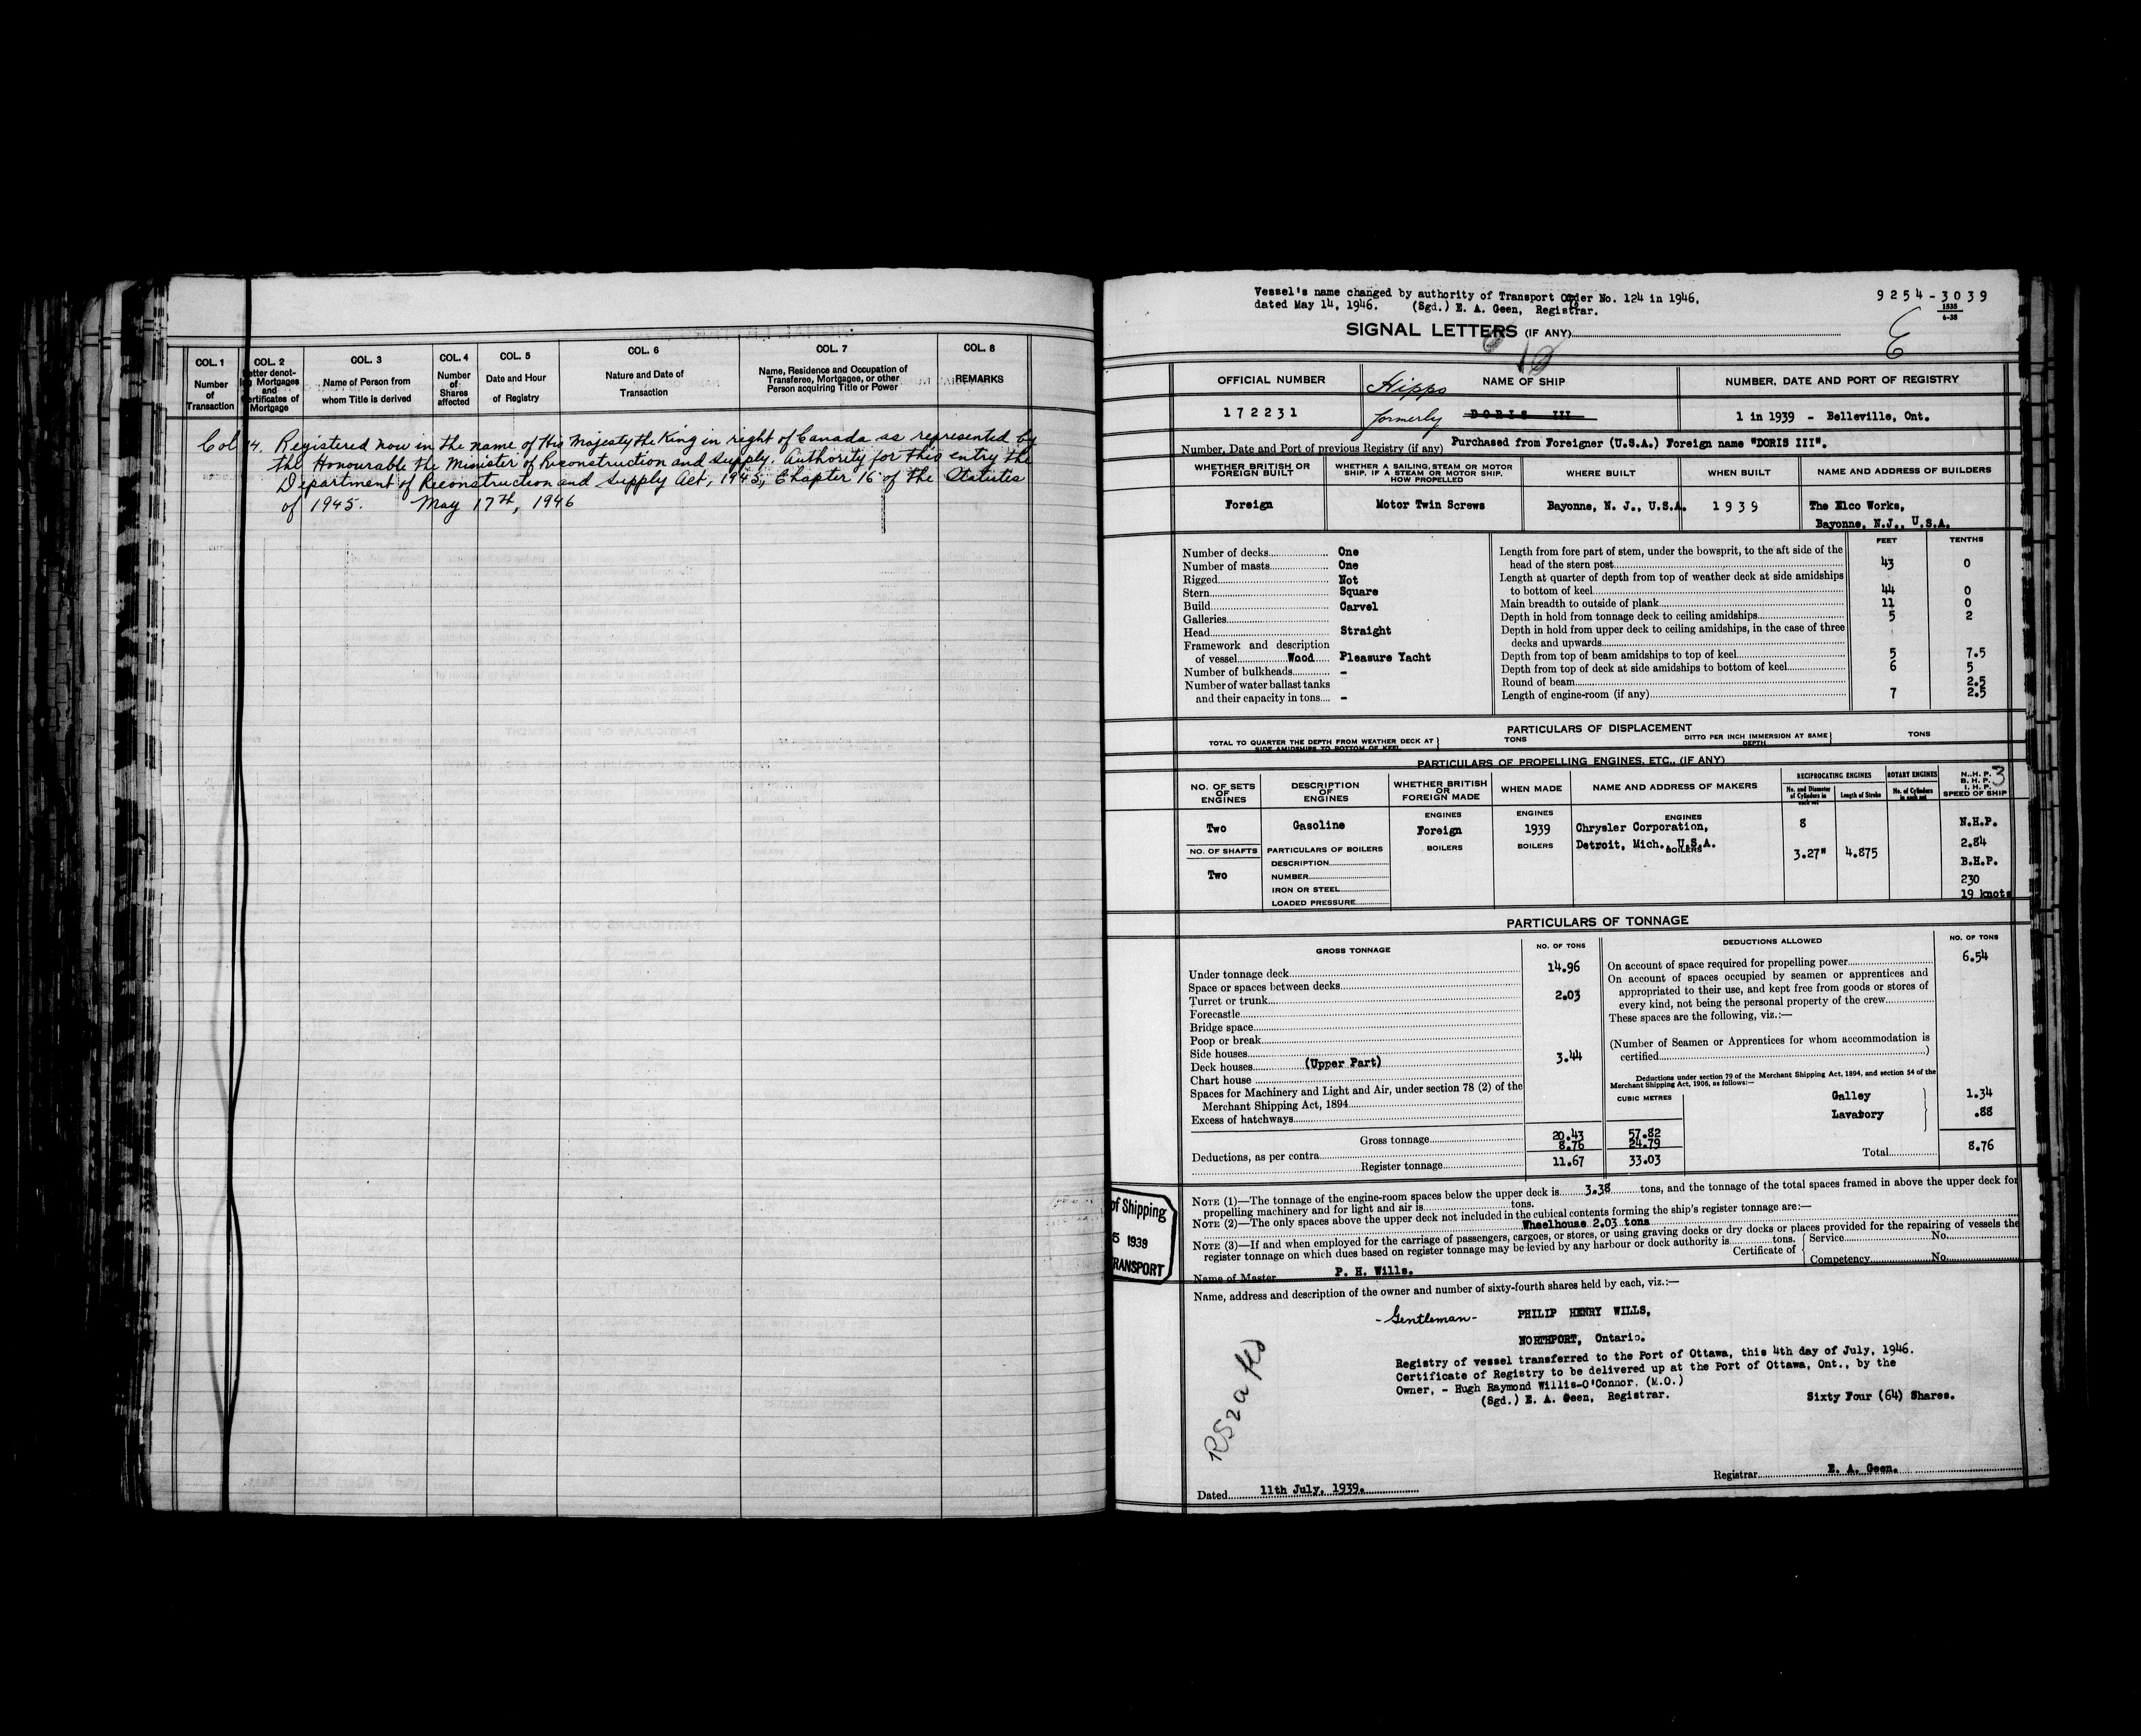 COL. 1
Number
of
Transaction
COL. 2
Letter denot-
ing Mortgages
and
Certificates of
Mortgage
COL. 3
Name of Person from
whom Title is derived
COL. 4
Number
of
Shares
affected
COL. 5
Date and Hour
of Registry
COL. 6
Nature and Date of
Transaction
COL. 7
Name, Residence and Occupation of
Transferee, Mortgagee, or other
Person acquiring Title or Power
COL. 8
REMARKS
Col 14. Registered now in the name of His Majesty the King in right of Canada as represented by
the Honourable the Minister of Reconstruction and Supply. Authority for this entry the
Department of Reconstruction and Supply Act, 1945, Chapter 16 of the Statutes
of 1945. May 17th, 1946
Vessel's name changed by authority of Transport Order No. 124 in 1946,
dated May 14, 1946. (Sgd.) E. A. Geen, Registrar.
9254-3039
1535
6-38
SIGNAL LETTERS (IF ANY)
6
OFFICIAL NUMBER
172231
NAME OF SHIP
Hipps
formerly DORIS III
NUMBER, DATE AND PORT OF REGISTRY
1 in 1939 - Belleville, Ont.
Number, Date and Port of previous Registry (if any) Purchased from Foreigner (U.S.A.) Foreign name "DORIS III".
WHETHER BRITISH OR
FOREIGN BUILT
Foreign
WHETHER A SAILING, STEAM OR MOTOR
SHIP, IF A STEAM OR MOTOR SHIP,
HOW PROPELLED
Motor Twin Screws
WHERE BUILT
Bayonne, N. J., U.S.A.
WHEN BUILT
1939
NAME AND ADDRESS OF BUILDERS
The Elco Works,
Bayonne, N.J., U.S.A.
Number of decks One
Number of masts One
Rigged Not
Stern Square
Build Carvel
Galleries
Head Straight
Framework and description
of vessel Wood Pleasure Yacht
Number of bulkheads -
Number of water ballast tanks
and their capacity in tons -
FEET TENTHS
Length from fore part of stem, under the bowsprit, to the aft side of the
head of the stern post 43 0
Length at quarter of depth from top of weather deck at side amidships
to bottom of keel 44 0
Main breadth to outside of plank 11 0
Depth in hold from tonnage deck to ceiling amidships 5 2
Depth in hold from upper deck to ceiling amidships, in the case of three
decks and upwards
Depth from top of beam amidships to top of keel 5 7.5
Depth from top of deck at side amidships to bottom of keel 6 5
Round of beam 2.5
Length of engine-room (if any) 7 2.5
PARTICULARS OF DISPLACEMENT
TOTAL TO QUARTER THE DEPTH FROM WEATHER DECK AT
SIDE AMIDSHIPS TO BOTTOM OF KEEL
TONS
DITTO PER INCH IMMERSION AT SAME
DEPTH
TONS
PARTICULARS OF PROPELLING ENGINES, ETC., (IF ANY)
NO. OF SETS
OF
ENGINES
Two
NO. OF SHAFTS
Two
DESCRIPTION
OF
ENGINES
Gasoline
PARTICULARS OF BOILERS
DESCRIPTION
NUMBER
IRON OR STEEL
LOADED PRESSURE
WHETHER BRITISH
OR
FOREIGN MADE
ENGINES
Foreign
BOILERS
WHEN MADE
ENGINES
1939
BOILERS
NAME AND ADDRESS OF MAKERS
ENGINES
Chrysler Corporation,
Detroit, Mich., U.S.A.
BOILERS
RECIPROCATING ENGINES
No. and Diameter
of Cylinders in
each set
8
3.27"
Length of Stroke
4.875
ROTARY ENGINES
No. of Cylinders
in each set
N.H.P. 3
B.H.P.
I.H.P.
SPEED OF SHIP
N.H.P.
2.84
B.H.P.
230
19 knots
PARTICULARS OF TONNAGE
GROSS TONNAGE NO. OF TONS
Under tonnage deck 14.96
Space or spaces between decks
Turret or trunk 2.03
Forecastle
Bridge space
Poop or break
Side houses
Deck houses (Upper Part) 3.44
Chart house
Spaces for Machinery and Light and Air, under section 78 (2) of the
Merchant Shipping Act, 1894
Excess of hatchways
CUBIC METRES
Gross tonnage 20.43 57.82
Deductions, as per contra 8.76 24.79
Register tonnage 11.67 33.03
DEDUCTIONS ALLOWED NO. OF TONS
On account of space required for propelling power 6.54
On account of spaces occupied by seamen or apprentices and
appropriated to their use, and kept free from goods or stores of
every kind, not being the personal property of the crew
These spaces are the following, viz.:—
(Number of Seamen or Apprentices for whom accommodation is
certified )
Deductions under section 79 of the Merchant Shipping Act, 1894, and section 54 of the
Merchant Shipping Act, 1906, as follows:—
Galley 1.34
Lavatory .88
Total 8.76
NOTE (1)—The tonnage of the engine-room spaces below the upper deck is 3.38 tons, and the tonnage of the total spaces framed in above the upper deck for
propelling machinery and for light and air is tons.
NOTE (2)—The only spaces above the upper deck not included in the cubical contents forming the ship's register tonnage are:—
Wheelhouse 2.03 tons
NOTE (3)—If and when employed for the carriage of passengers, cargoes, or stores, or using graving docks or dry docks or places provided for the repairing of vessels the
register tonnage on which dues based on register tonnage may be levied by any harbour or dock authority is tons.
Certificate of
Service No.
Competency No.
of Shipping
5 1939
RANSPORT
Name of Master P. H. Wills.
Name, address and description of the owner and number of sixty-fourth shares held by each, viz.:—
- Gentleman - PHILIP HENRY WILLS,
NORTHPORT, Ontario.
Registry of vessel transferred to the Port of Ottawa, this 4th day of July, 1946.
Certificate of Registry to be delivered up at the Port of Ottawa, Ont., by the
Owner, - Hugh Raymond Willis-O'Connor. (M.O.)
(Sgd.) E. A. Geen, Registrar.
Sixty Four (64) Shares.
Registrar E. A. Geen.
Dated 11th July, 1939.